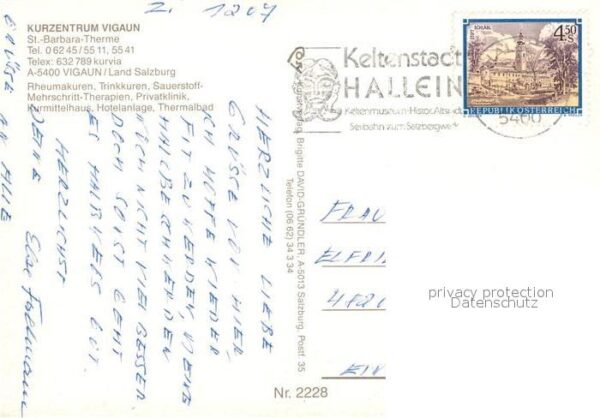 Zi 1207
KURZENTRUM VIGAUN
St.-Barbara-Therme
Tel. 0 62 45/55 11, 55 41
Telex: 632 789 kurvia
A-5400 VIGAUN/Land Salzburg
Rheumakuren, Trinkkuren, Sauerstoff-
Mehrschritt-Therapien, Privatklinik,
Kurmittelhaus, Hotelanlage, Thermalbad
HERZLICHE LIEBE
GRÜSSE VON HIER,
ICH HOFFE WIEDER
FIT ZU WERDEN, MEINE
SICH NICHT VIEL BESSER
DOCH SONST GEHT
ES HALBWEGS GUT.
HERZLICHST
DEINE
GRÜSSE AN ALLE
Brigitte DAVID-GRÜNDLER, A-5013 Salzburg, Postf. 35
Telefon (06 62) 34 3 34
Keltenstadt
HALLEIN
Keltenmuseum-Histor. Altstadt
Seilbahn zum Salzbergwerk
5400
4.50 S
REPUBLIK ÖSTERREICH
FRAU
ELFRI
privacy protection
Datenschutz
Nr. 2228